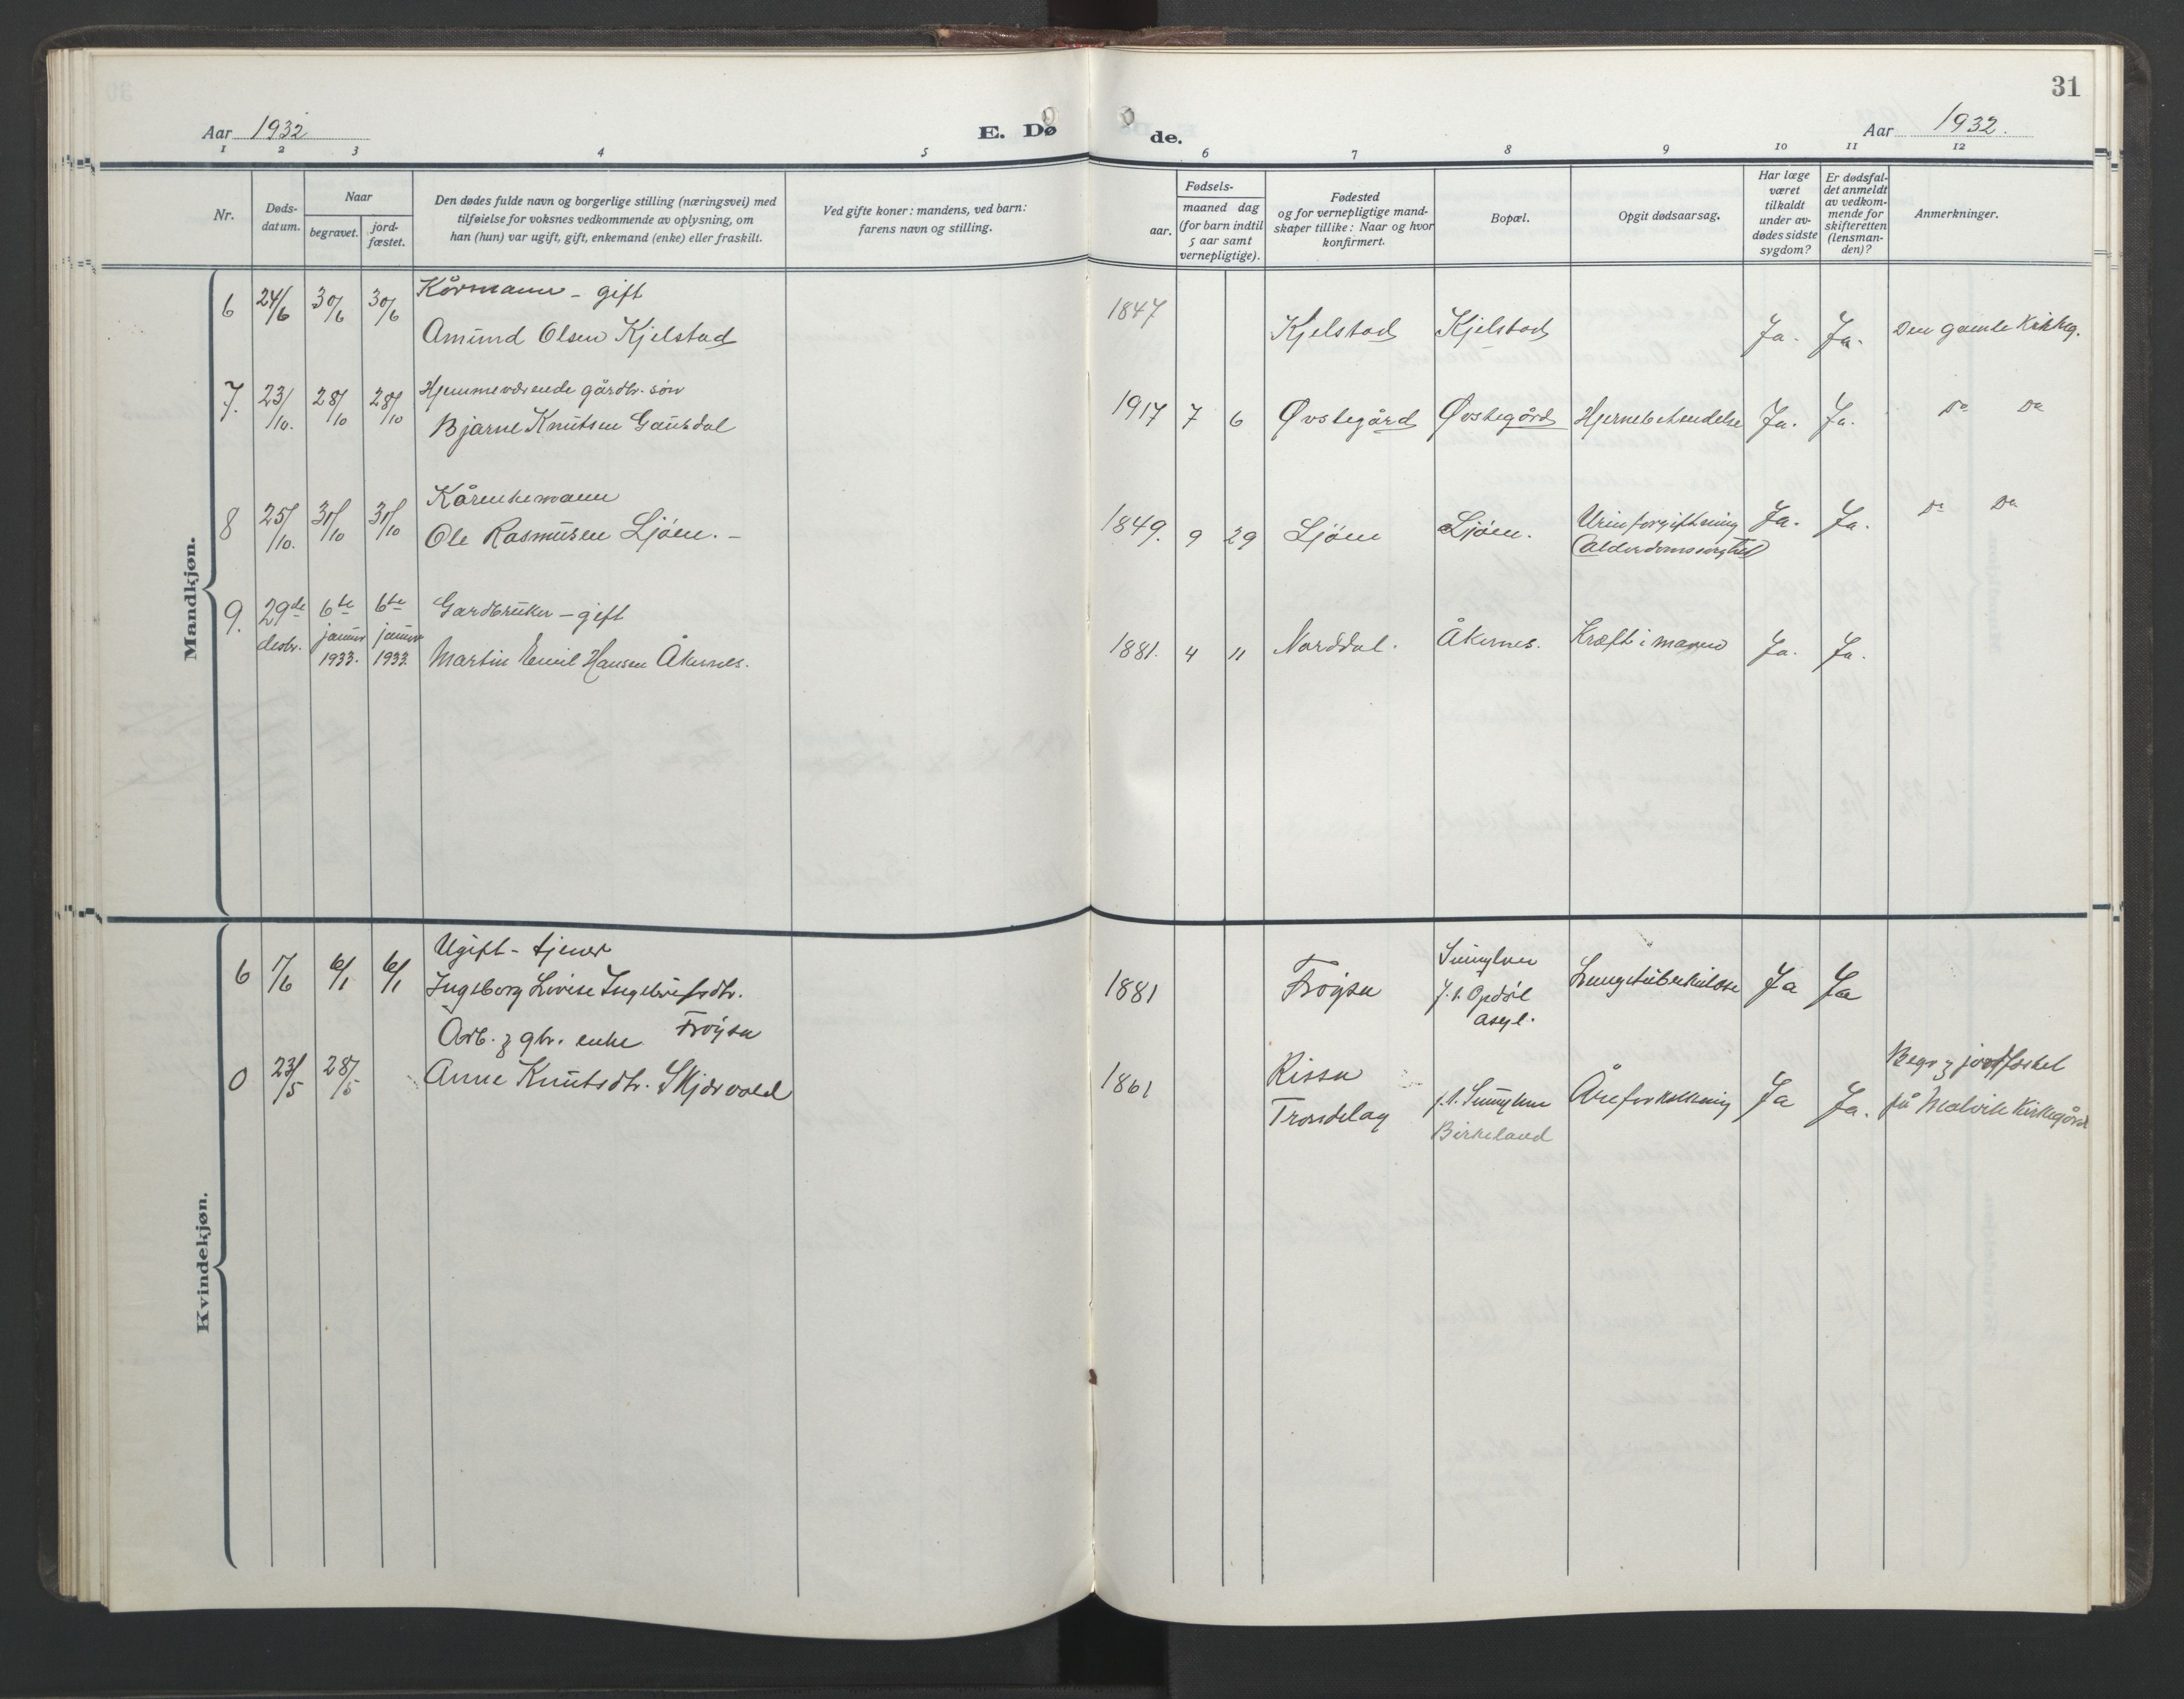 31
Aar 1932
E. Dø
de.
Aar 1932.
1 2 3 4 5 6 7 8 9 10 11 12
Nr.
Døds-
datum.
Naar
begravet.
jord-
fæstet.
Den dødes fulde navn og borgerlige stilling (næringsvei) med
tilføielse for voksnes vedkommende av oplysning, om
han (hun) var ugift, gift, enkemand (enke) eller fraskilt.
Ved gifte koner: mandens, ved barn:
farens navn og stilling.
Fødsels-
aar.
maaned dag
(for barn indtil
5 aar samt
vernepligtige).
Fødested
og for vernepligtige mand-
skaper tillike: Naar og hvor
konfirmert.
Bopæl.
Opgit dødsaarsag.
Har læge
været
tilkaldt
under av-
dødes sidste
sygdom?
Er dødsfal-
det anmeldt
av vedkom-
mende for
skifteretten
(lensman-
den)?
Anmerkninger.
Mandkjøn.
6 24/6 30/6 30/6 Kårmann - gift
Amund Olsen Kjelstad
1847 Kjelstad Kjelstad Ja. Ja. Den gamle Kirkeg.
7. 23/10. 28/10 28/10 Hjemmeværende gårdbr. sön
Bjarne Knutsen Gausdal
1917 7 6 Øvstegård Øvstegård Hjernebetendelse Ja. Ja. Do Do
8 25/10. 31/10 31/10 Kårenkemann
Ole Rasmusen Ljöen. -
1849. 9 29 Ljöen Ljöen. Urinforgiftning Ja. Ja. Do Do
9. 29de desbr. 6te januar 1933. 6te januar 1933. Gardbruker - gift
Martin Emil Hansen Åkernes.
1881. 4 11 Norddal. Åkernes. Kræft i maven Ja. Ja.
Kvindekjøn.
6 1/6 6/1 6/1 Ugift - tjener
Ingeborg Lovise Ingebrigtsdtr.
Fröysa
1881 Fröysa Sunnylven
f. t. Opdöl
asyl.
Lungetuberkulose Ja Ja
0 23/5 28/5 Arb. & gbr. enke
Anne Knutsdtr. Skjærvold
1861 Rissa
Trondelag
f. t. Sunnylven
Birkeland
Åreforkalkning Ja Ja.
Begr & jordfæstet
på Malvik Kirkegård